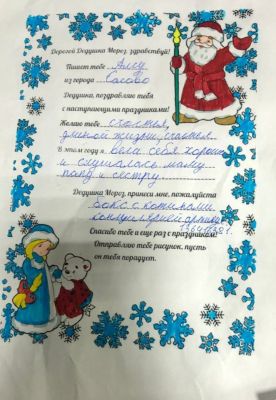 Дорогой Дедушка Мороз, здравствуй!
Пишет тебе Алсу
из города Сасово
Дедушка, поздравляю тебя
с наступающими праздниками!
Желаю тебе счастья,
долгой жизни, счастья.
В этом году я вела себя хорошо
и слушалась маму
папу и сестру.
Дедушка Мороз, принеси мне, пожалуйста
бокс с
Спасибо тебе и еще раз с праздником!
Отправляю тебе рисунок, пусть
он тебя порадует.